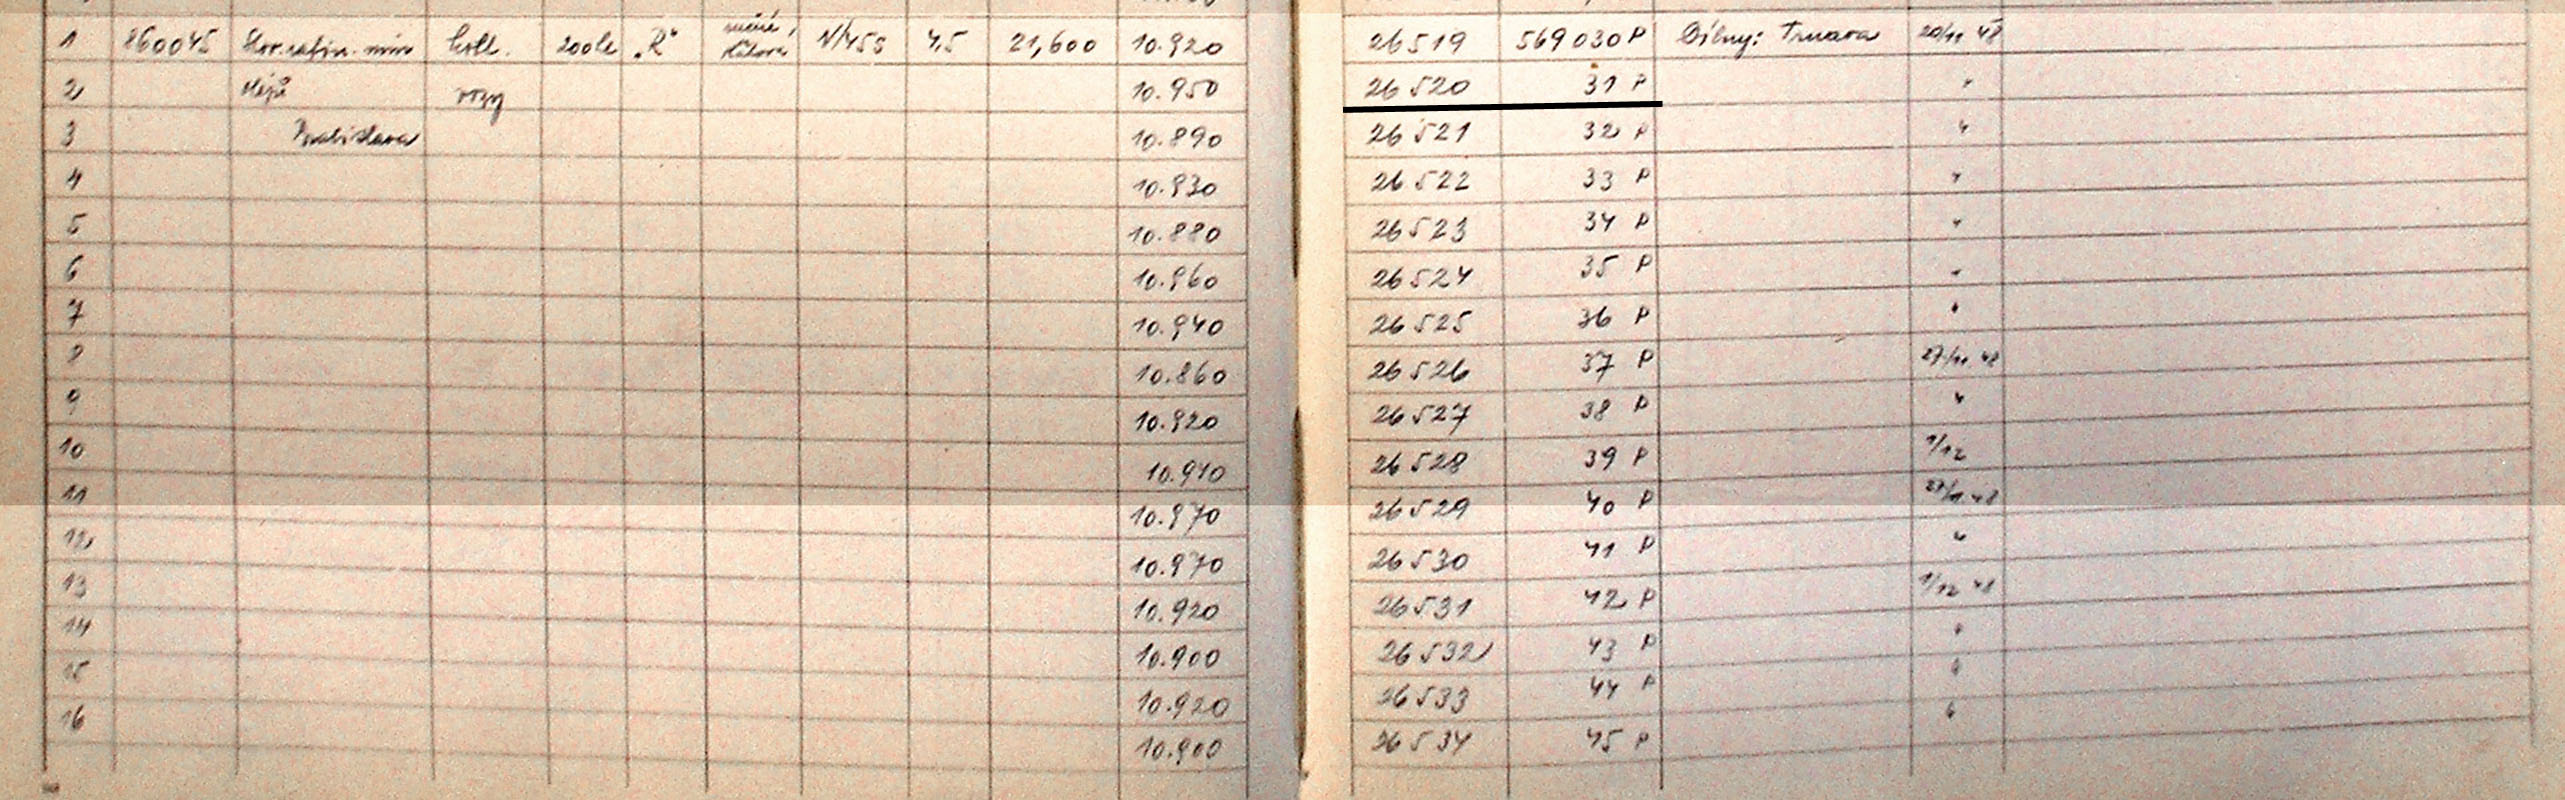 1 860045 Slov. rafin. min. kotl. 200le „R“ ručně, N/455 4,5 21,600 10.920 26519 569030 P Dílny: Trnava 20/11 48
2 olejů vozy 10.950 26520 31 P "
3 Bratislava 10.890 26521 32 P "
4 10.930 26522 33 P "
5 10.880 26523 34 P "
6 10.960 26524 35 P "
7 10.940 26525 36 P "
8 10.860 26526 37 P 27/11 48
9 10.920 26527 38 P "
10 10.910 26528 39 P 1/12
11 10.970 26529 40 P 27/11 48
12 10.970 26530 41 P "
13 10.920 26531 42 P 1/12 48
14 10.900 26532 43 P "
15 10.920 26533 44 P "
16 10.900 26534 45 P "